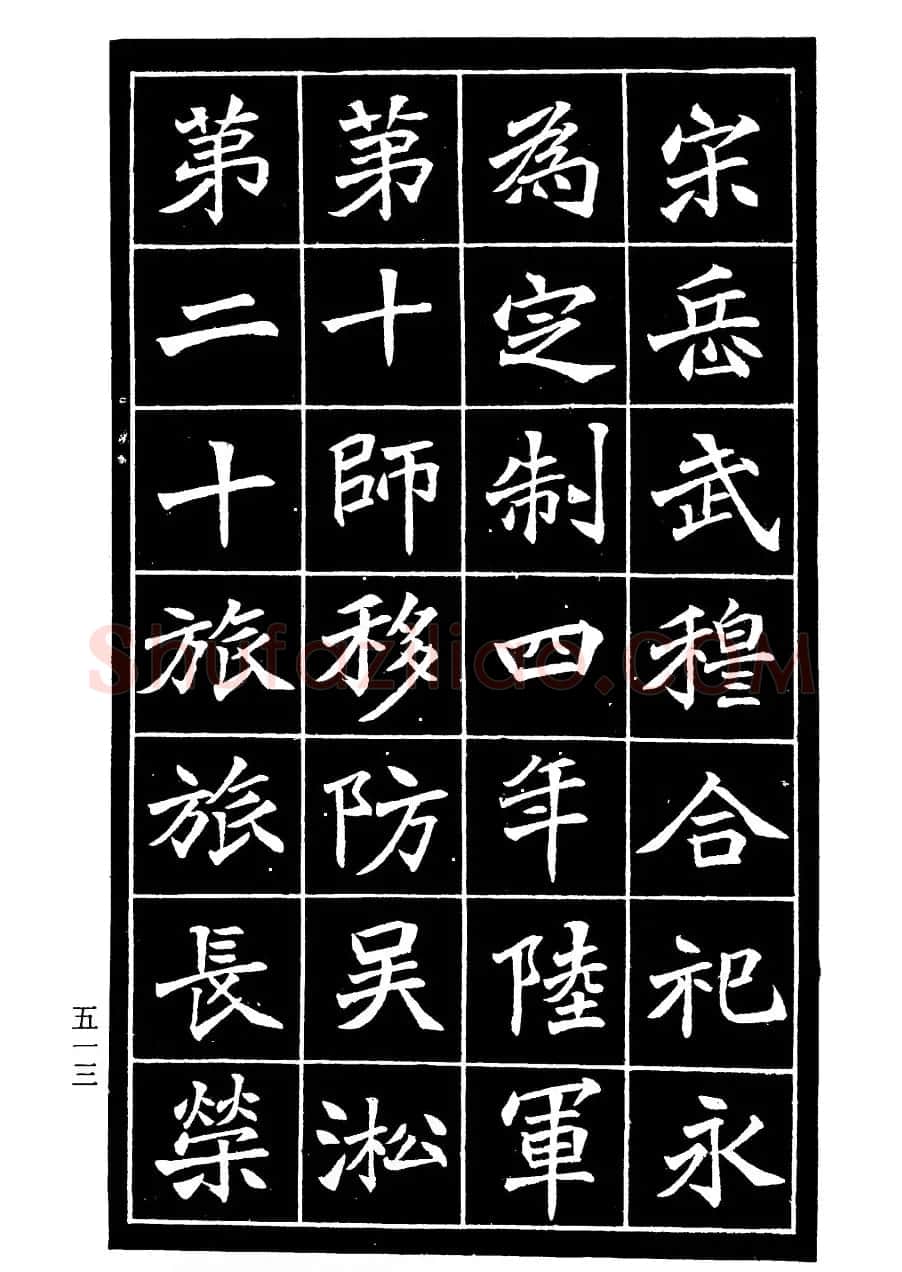 宋岳武穆合祀永
為定制四年陸軍
第十師移防吴淞
第二十旅旅長榮
五一三
Shufaziliao.COM